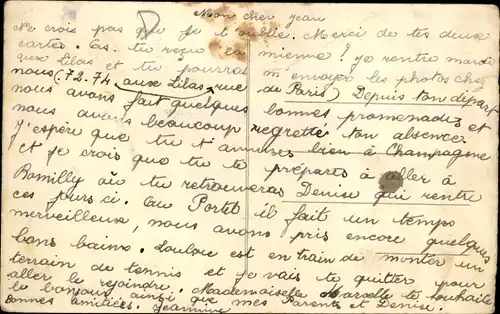 Mon cher Jean
Ne crois pas que je t'oublie. Merci de tes deux
cartes. As-tu reçu la mienne? je rentre mardi
aux Lilas et tu pourras m'envoyer les photos chez
nous (72.74 aux Lilas, rue de Paris) Depuis ton départ
nous avons fait quelques bonnes promenades et
nous avons beaucoup regretté ton absence.
J'espère que tu t'amuses bien à Champagne
et je crois que tu te prépares à aller à
Romilly où tu retrouveras Denise qui rentre
ces jours ci. Au Portel il fait un temps
merveilleux, nous avons pris encore quelques
bons bains. Loulou est en train de monter un
terrain de tennis et je vais te quitter pour
aller le rejoindre. Mademoiselle Marcelle te souhaite
le bonjour ainsi que mes Parents et Denise.
Bonnes amitiés. Jeannine